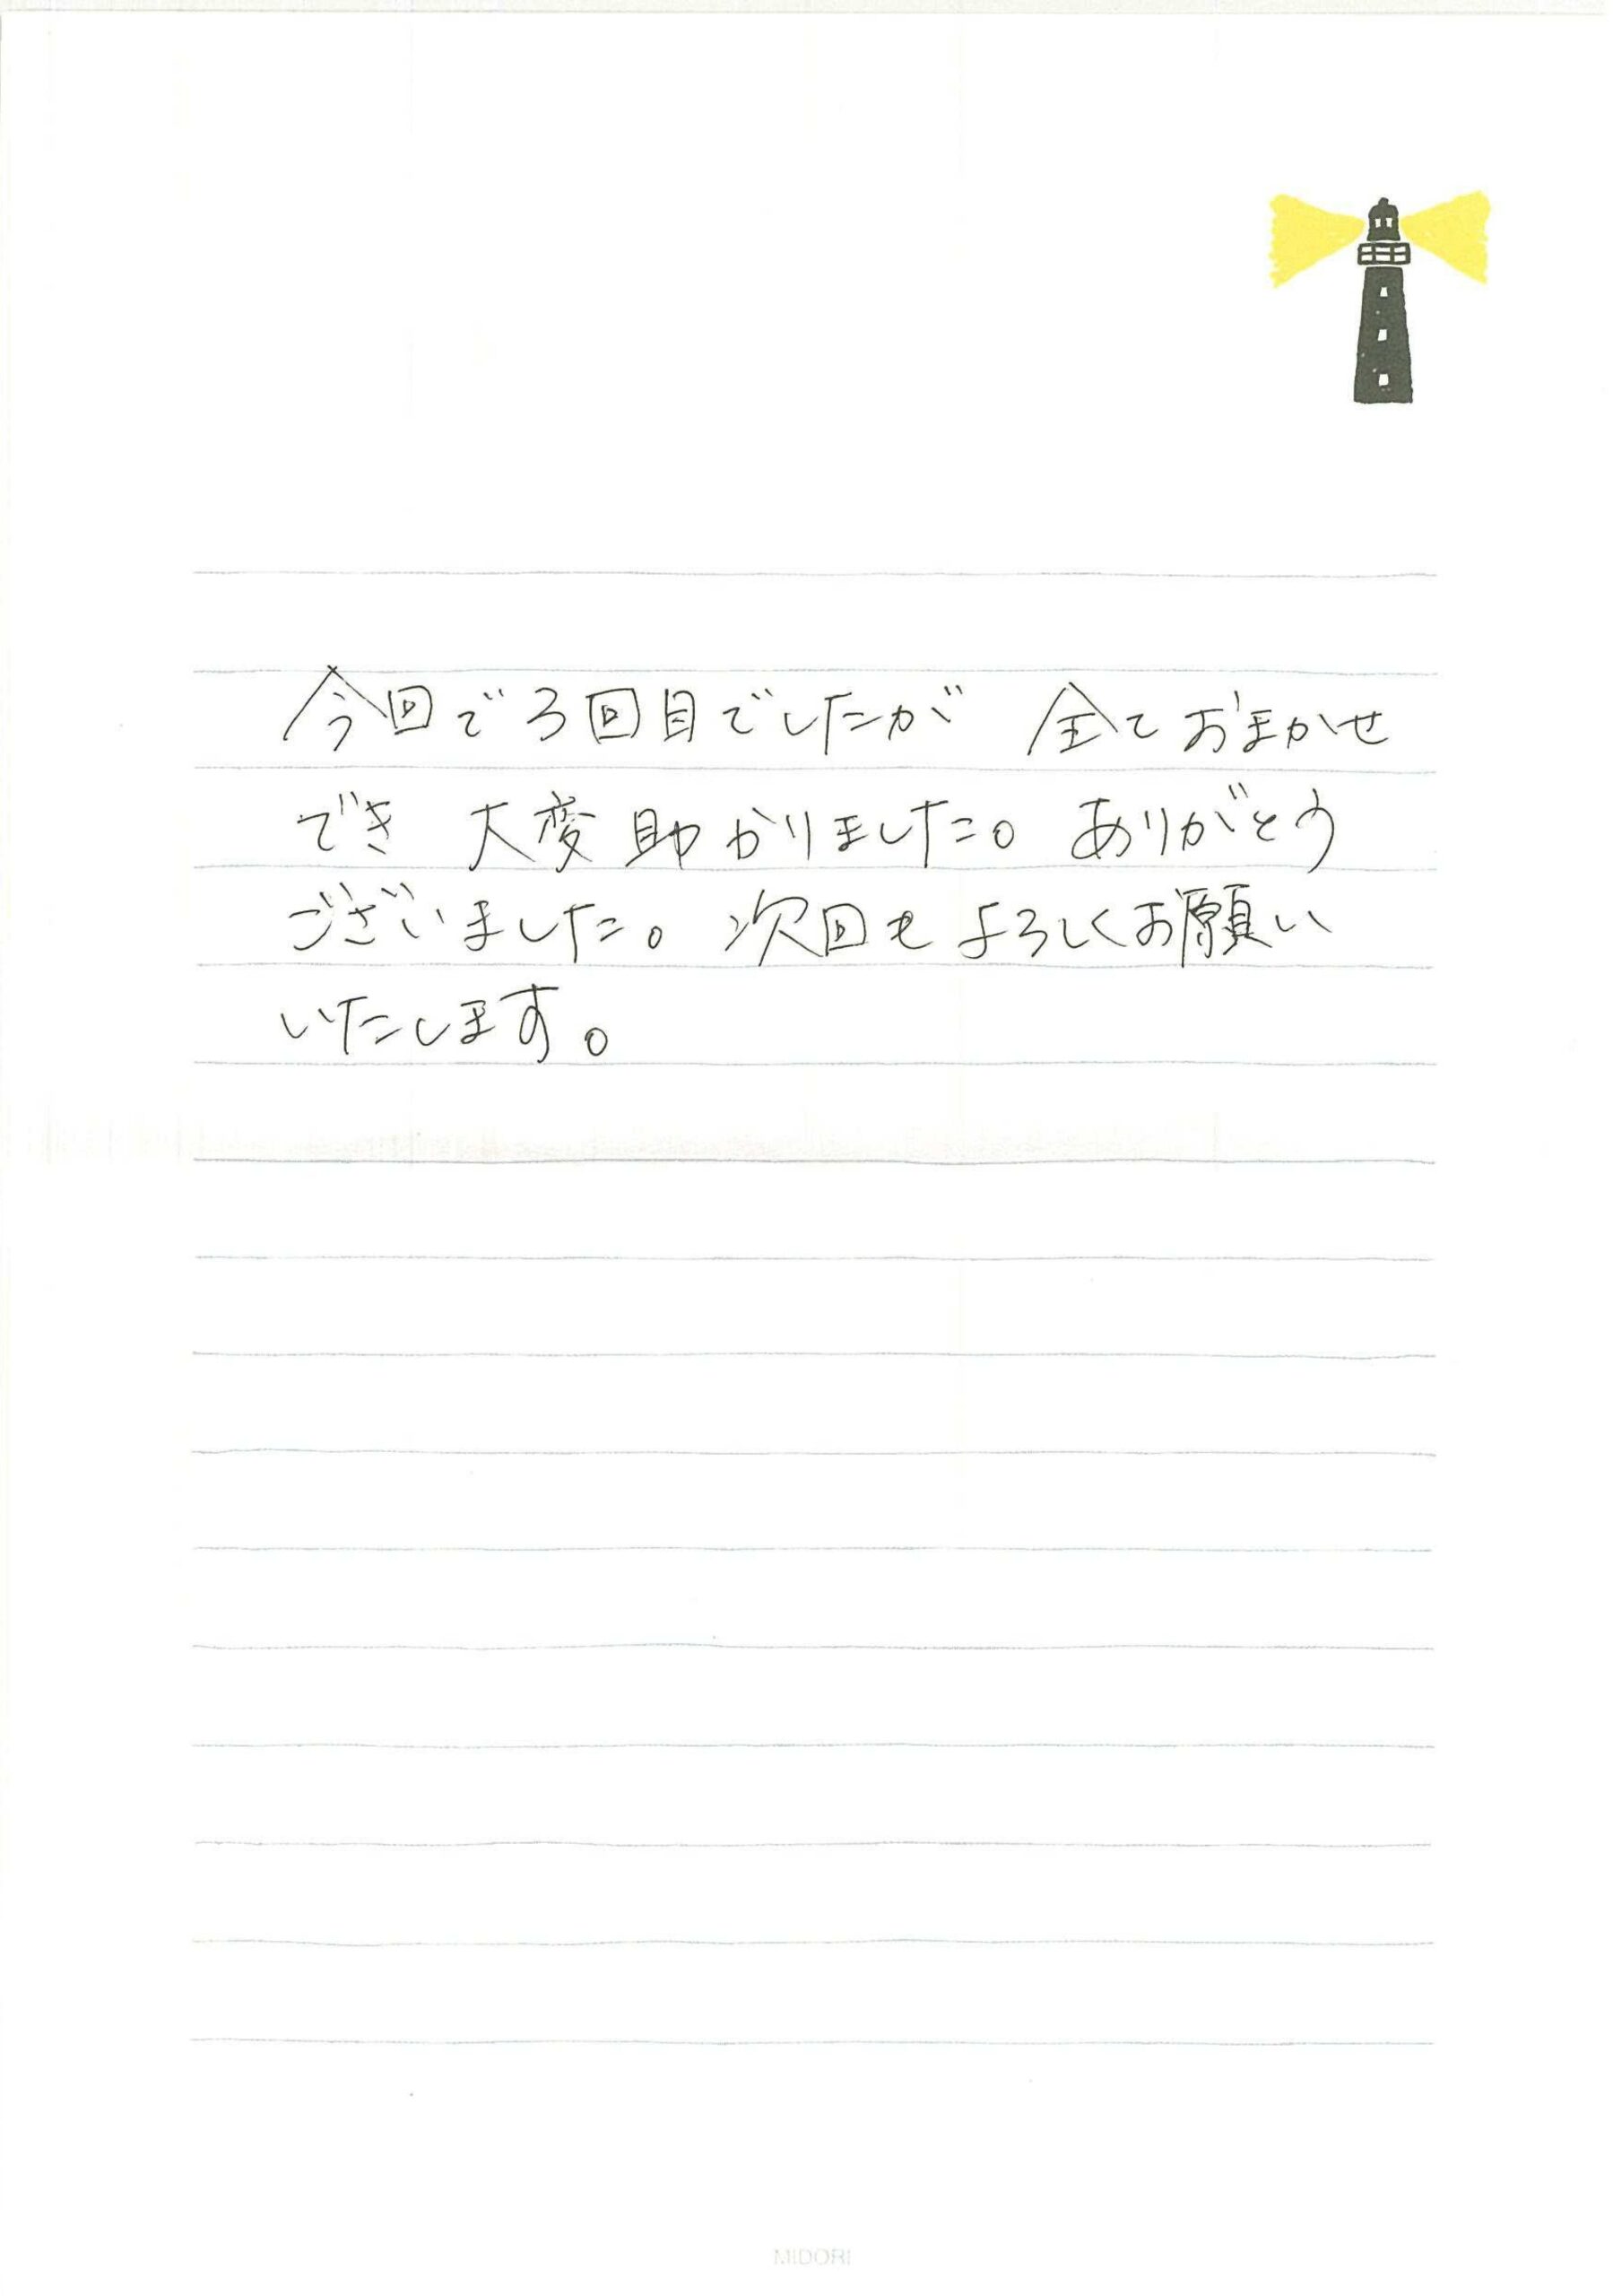 今回で3回目でしたが 全ておまかせ
でき 大変助かりました。ありがとう
ございました。次回もよろしくお願い
いたします。
MIDORI